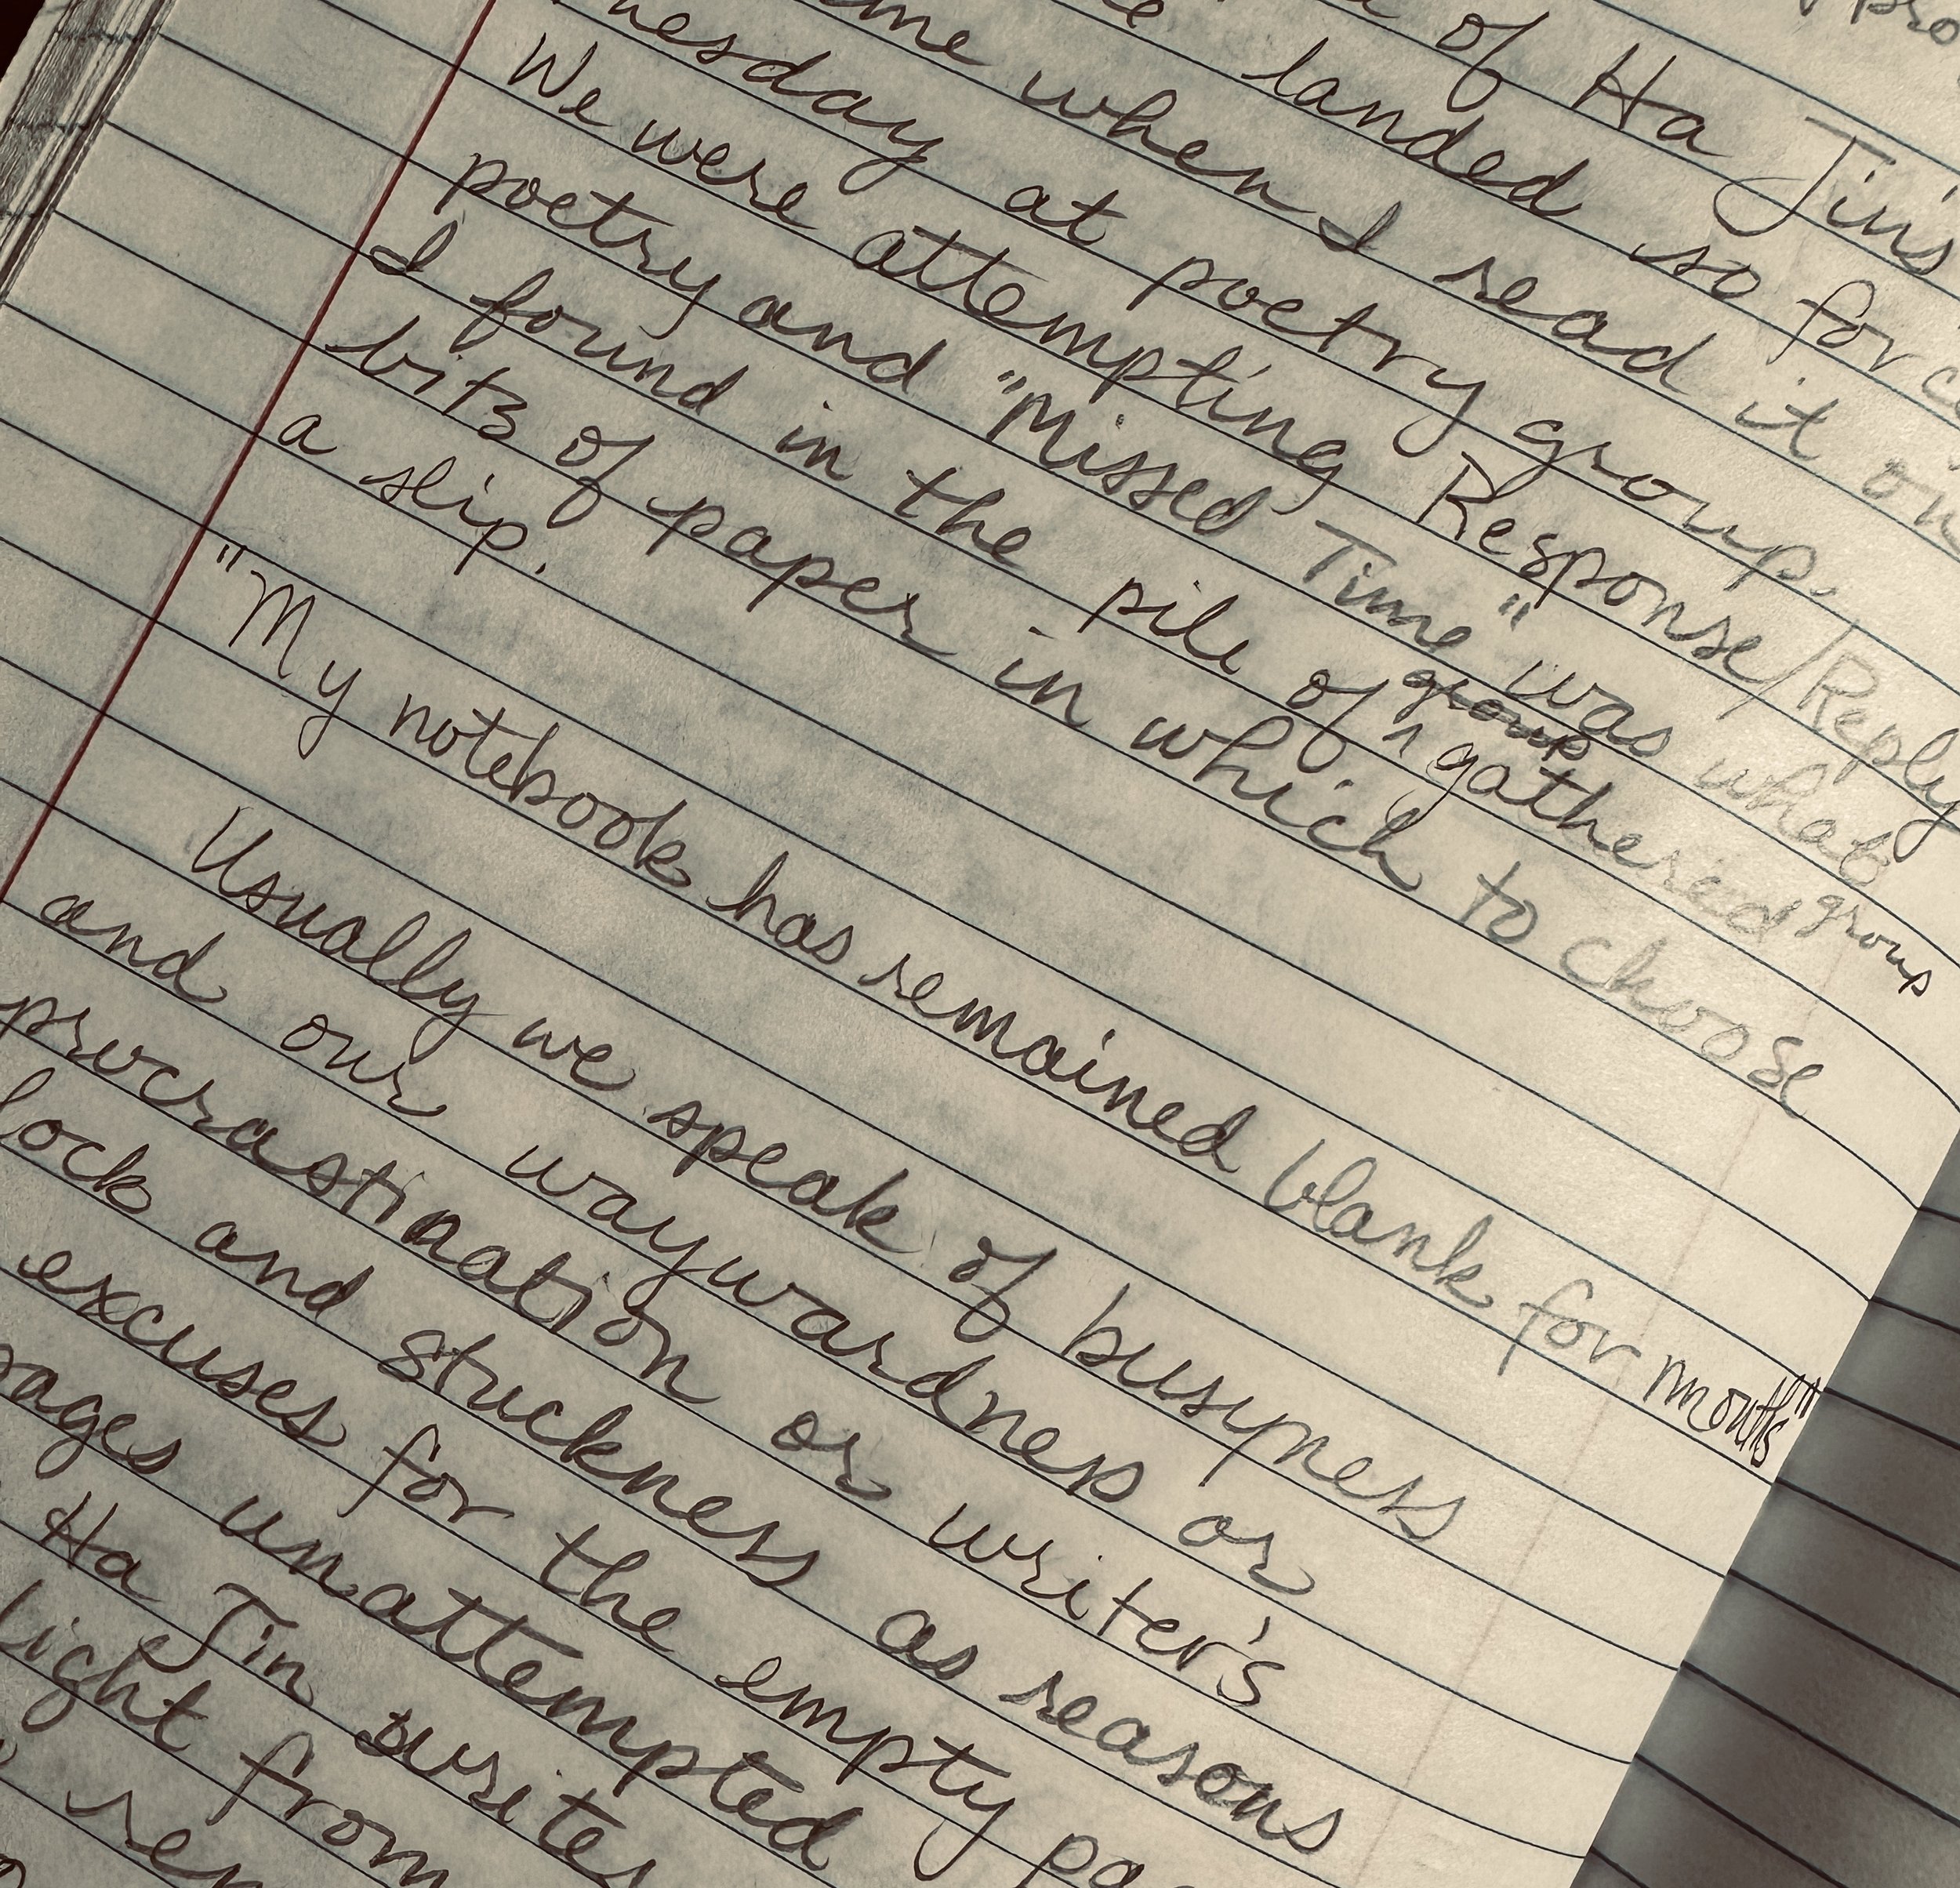 of Ha Jin's
landed so forc
me when I read it on
nesday at poetry group.
We were attempting Response/Reply
poetry and "Missed Time" was what
group
I found in the pile of gathered group
bits of paper in which to choose
a slip.
"My notebook has remained blank for months"
Usually we speak of busyness
and our waywardness or
procrastination or writer's
lock and stuckness as reasons
excuses for the empty pa
ages unattempted
Ha Jin writes
light from